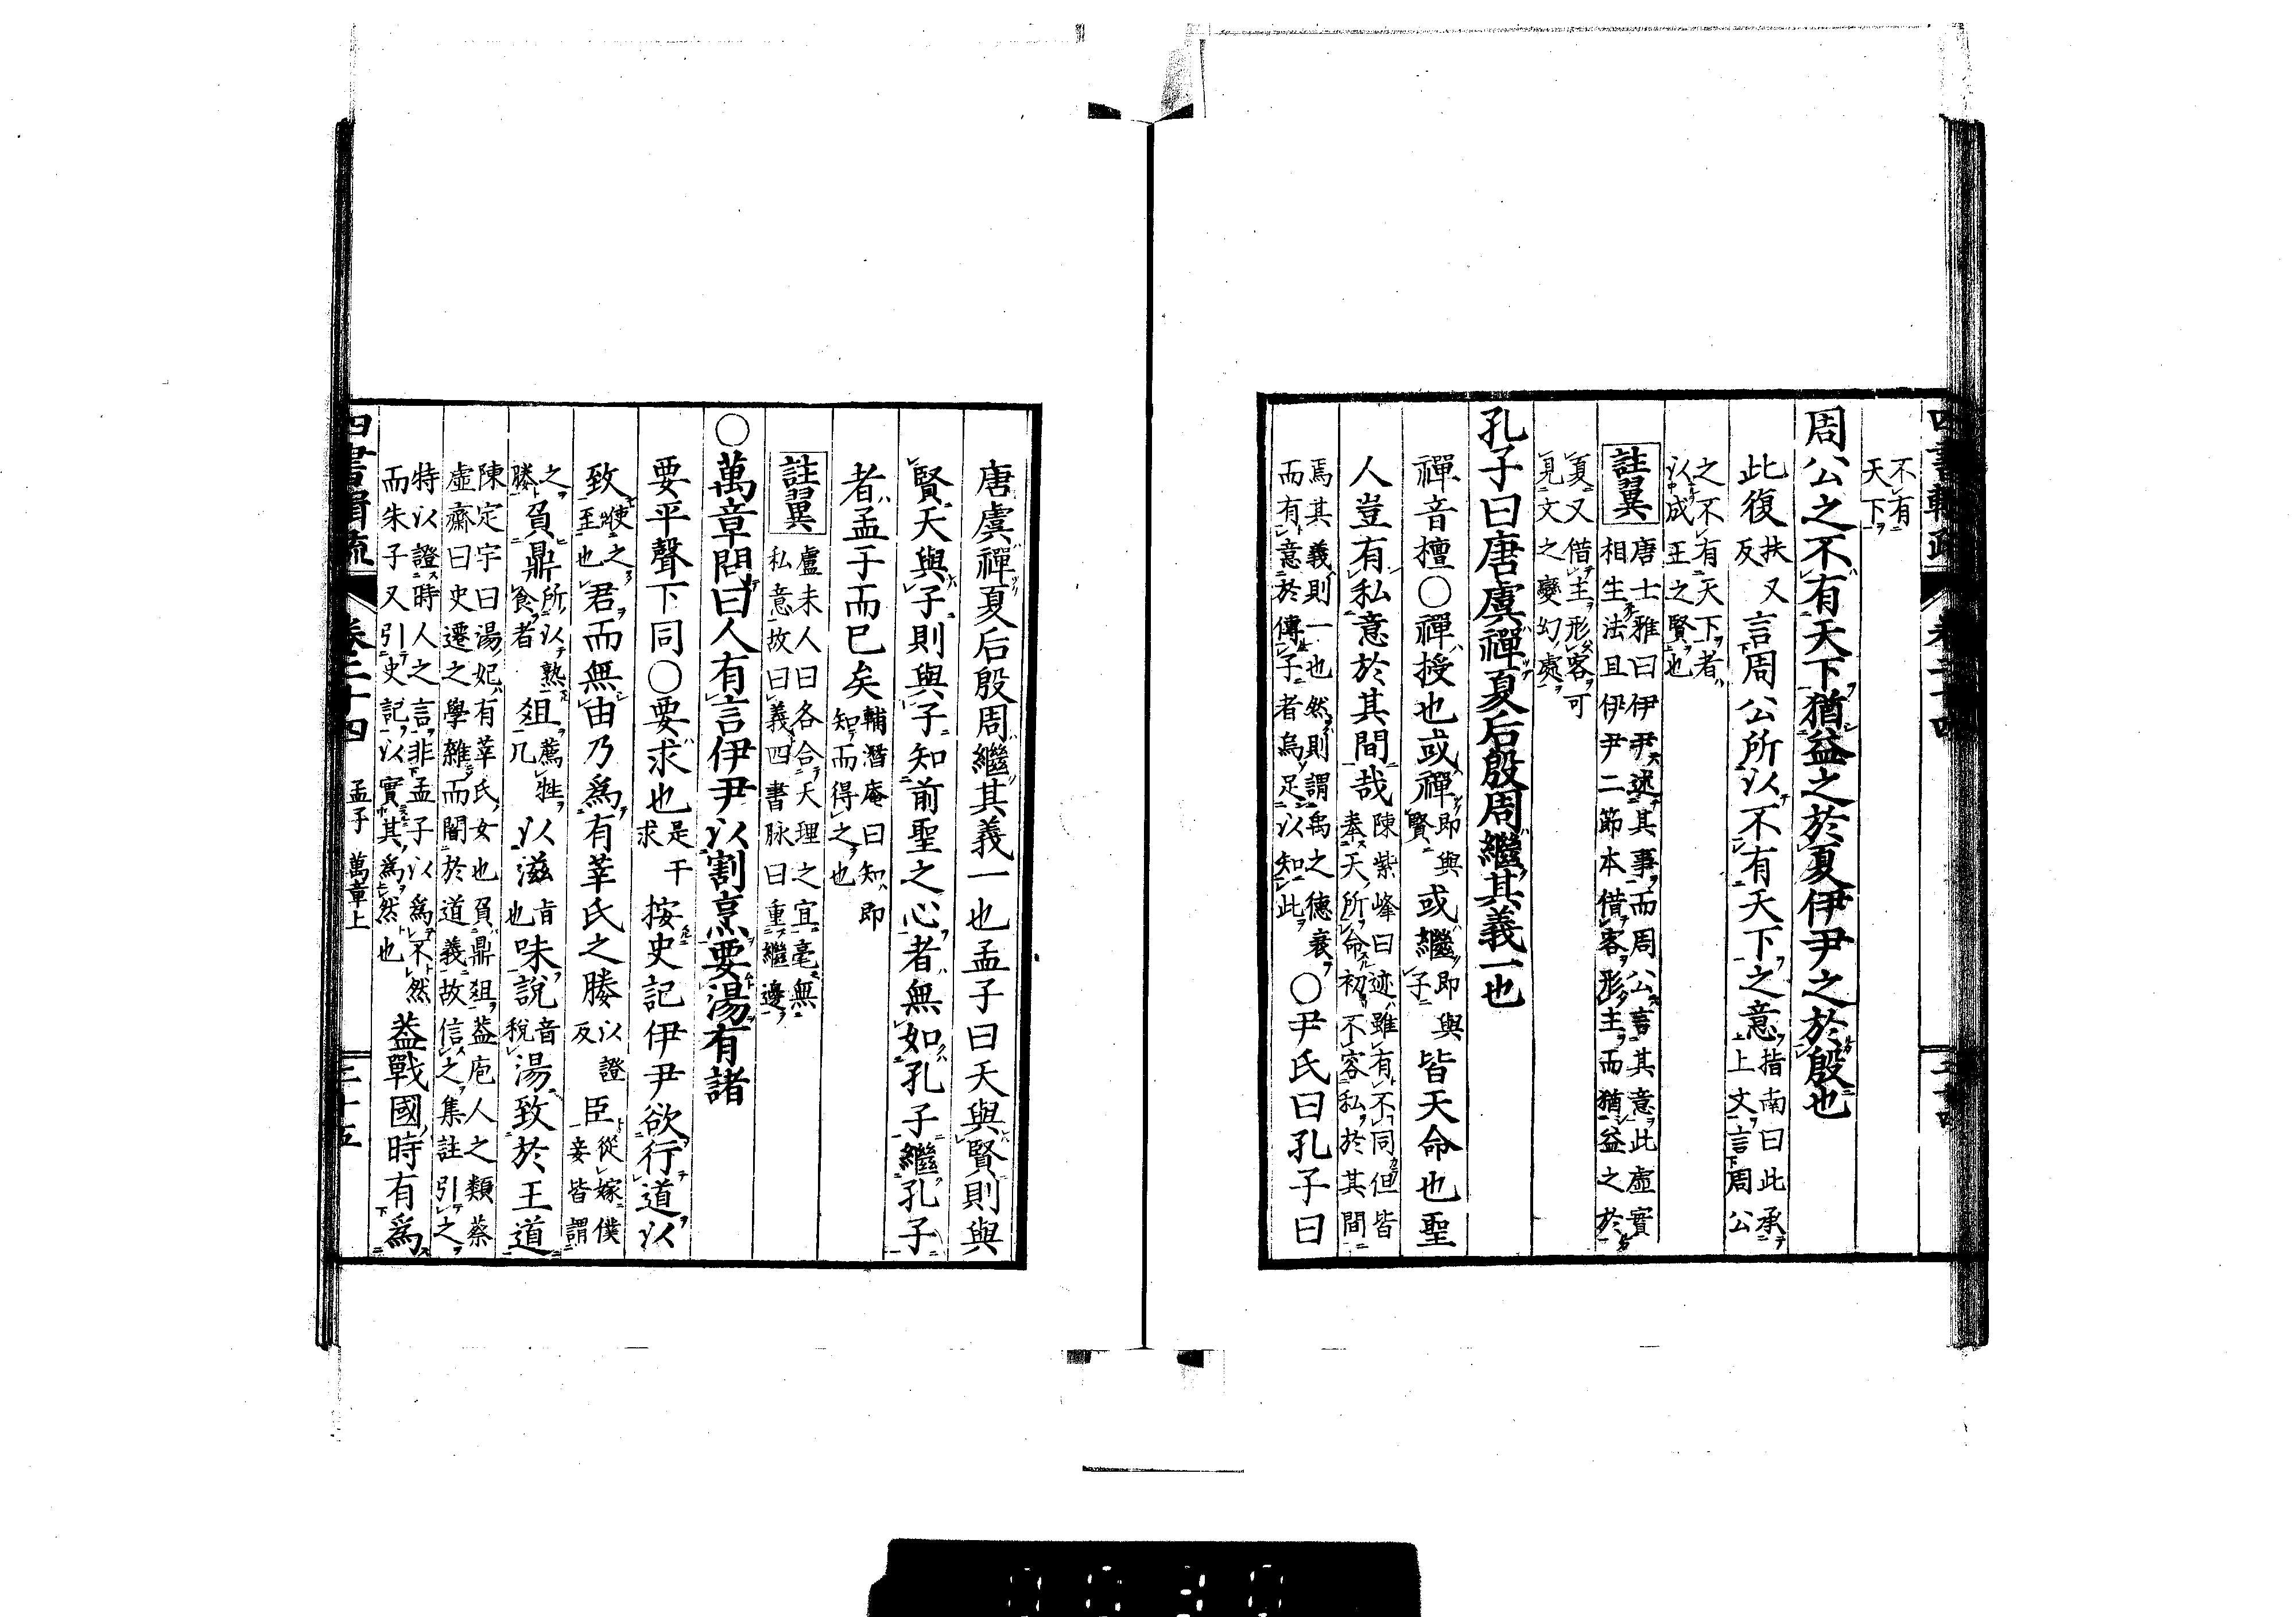 不有
天下
周公之不有天下猶益之於夏伊尹之於殷也
此復扶又反言周公所以不有天下之意指南曰此承上文言周公
之不有天下者
以成王之賢也
註翼唐士雅曰伊尹述其事而周公言其意此虛實相生法且伊尹二節本借客形主而猶益之於
夏又借主形客可
見文之變幻處
孔子曰唐虞禪夏后殷周繼其義一也
禪音擅○禪授也或禪即與賢或繼即與子皆天命也聖
人豈有私意於其間哉陳紫峰曰迹雖有不同但皆奉天所命初不容私於其間
焉其義則一也然則謂禹之德衰而有意於傳子者烏足以知此○尹氏曰孔子曰
唐虞禪夏后殷周繼其義一也孟子曰天與賢則與
賢天與子則與子知前聖之心者無如孔子繼孔子
者孟子而已矣輔潛庵曰知即知而得之也
註翼盧未人曰各合天理之宜毫無私意故曰義四書脉曰重繼邊
○萬章問曰人有言伊尹以割烹要湯有諸
要平聲下同○要求也是干求按史記伊尹欲行道以
致使之至也君而無由乃爲有莘氏之媵以證反臣從嫁僕妾皆謂
之媵負鼎所以熟食者俎薦牲几以滋旨也味說音稅湯致於王道
陳定宇曰湯妃有莘氏女也負鼎俎蓋庖人之類蔡
虛齋曰史遷之學雜而闇於道義故信之集註引之
特以證時人之言非孟子以爲不然而朱子又引史記以實其爲然也蓋戰國時有爲
四書
卷二十四
孟子 萬章上
三十五